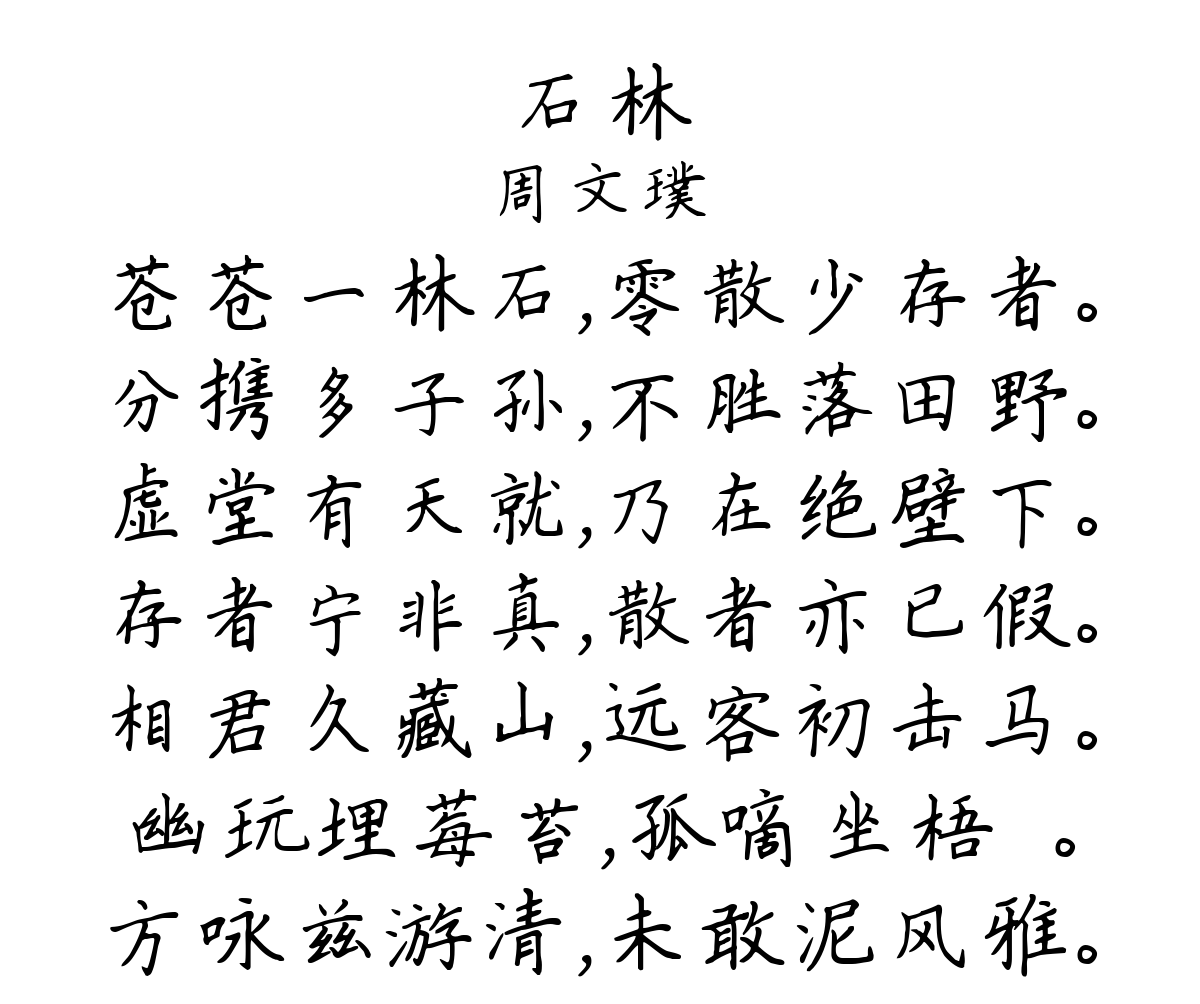 石林
周文璞
苍苍一林石,零散少存者。
分携多子孙,不胜落田野。
虚堂有天就,乃在绝壁下。
存者宁非真,散者亦已假。
相君久藏山,远客初击马。
幽玩埋莓苔,孤嘀坐梧 。
方咏兹游清,未敢泥风雅。